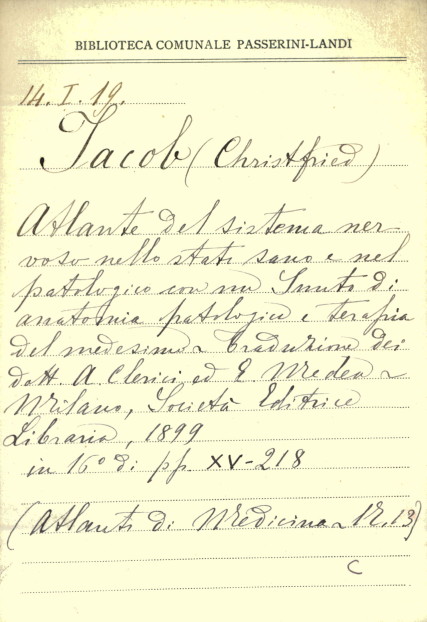 BIBLIOTECA COMUNALE PASSERINI-LANDI
14. I. 19.
Jacob (Christfried)
Atlante del sistema ner-
voso nello stato sano e nel
patologico con un Sunto di
anatomia patologica e terapia
del medesimo - Traduzione dei
dott. A. Clerici ed E. Medea -
Milano, Società Editrice
Libraria, 1899
in 16° di pp. XV-218
(Atlanti di Medicina - 12.13)
C